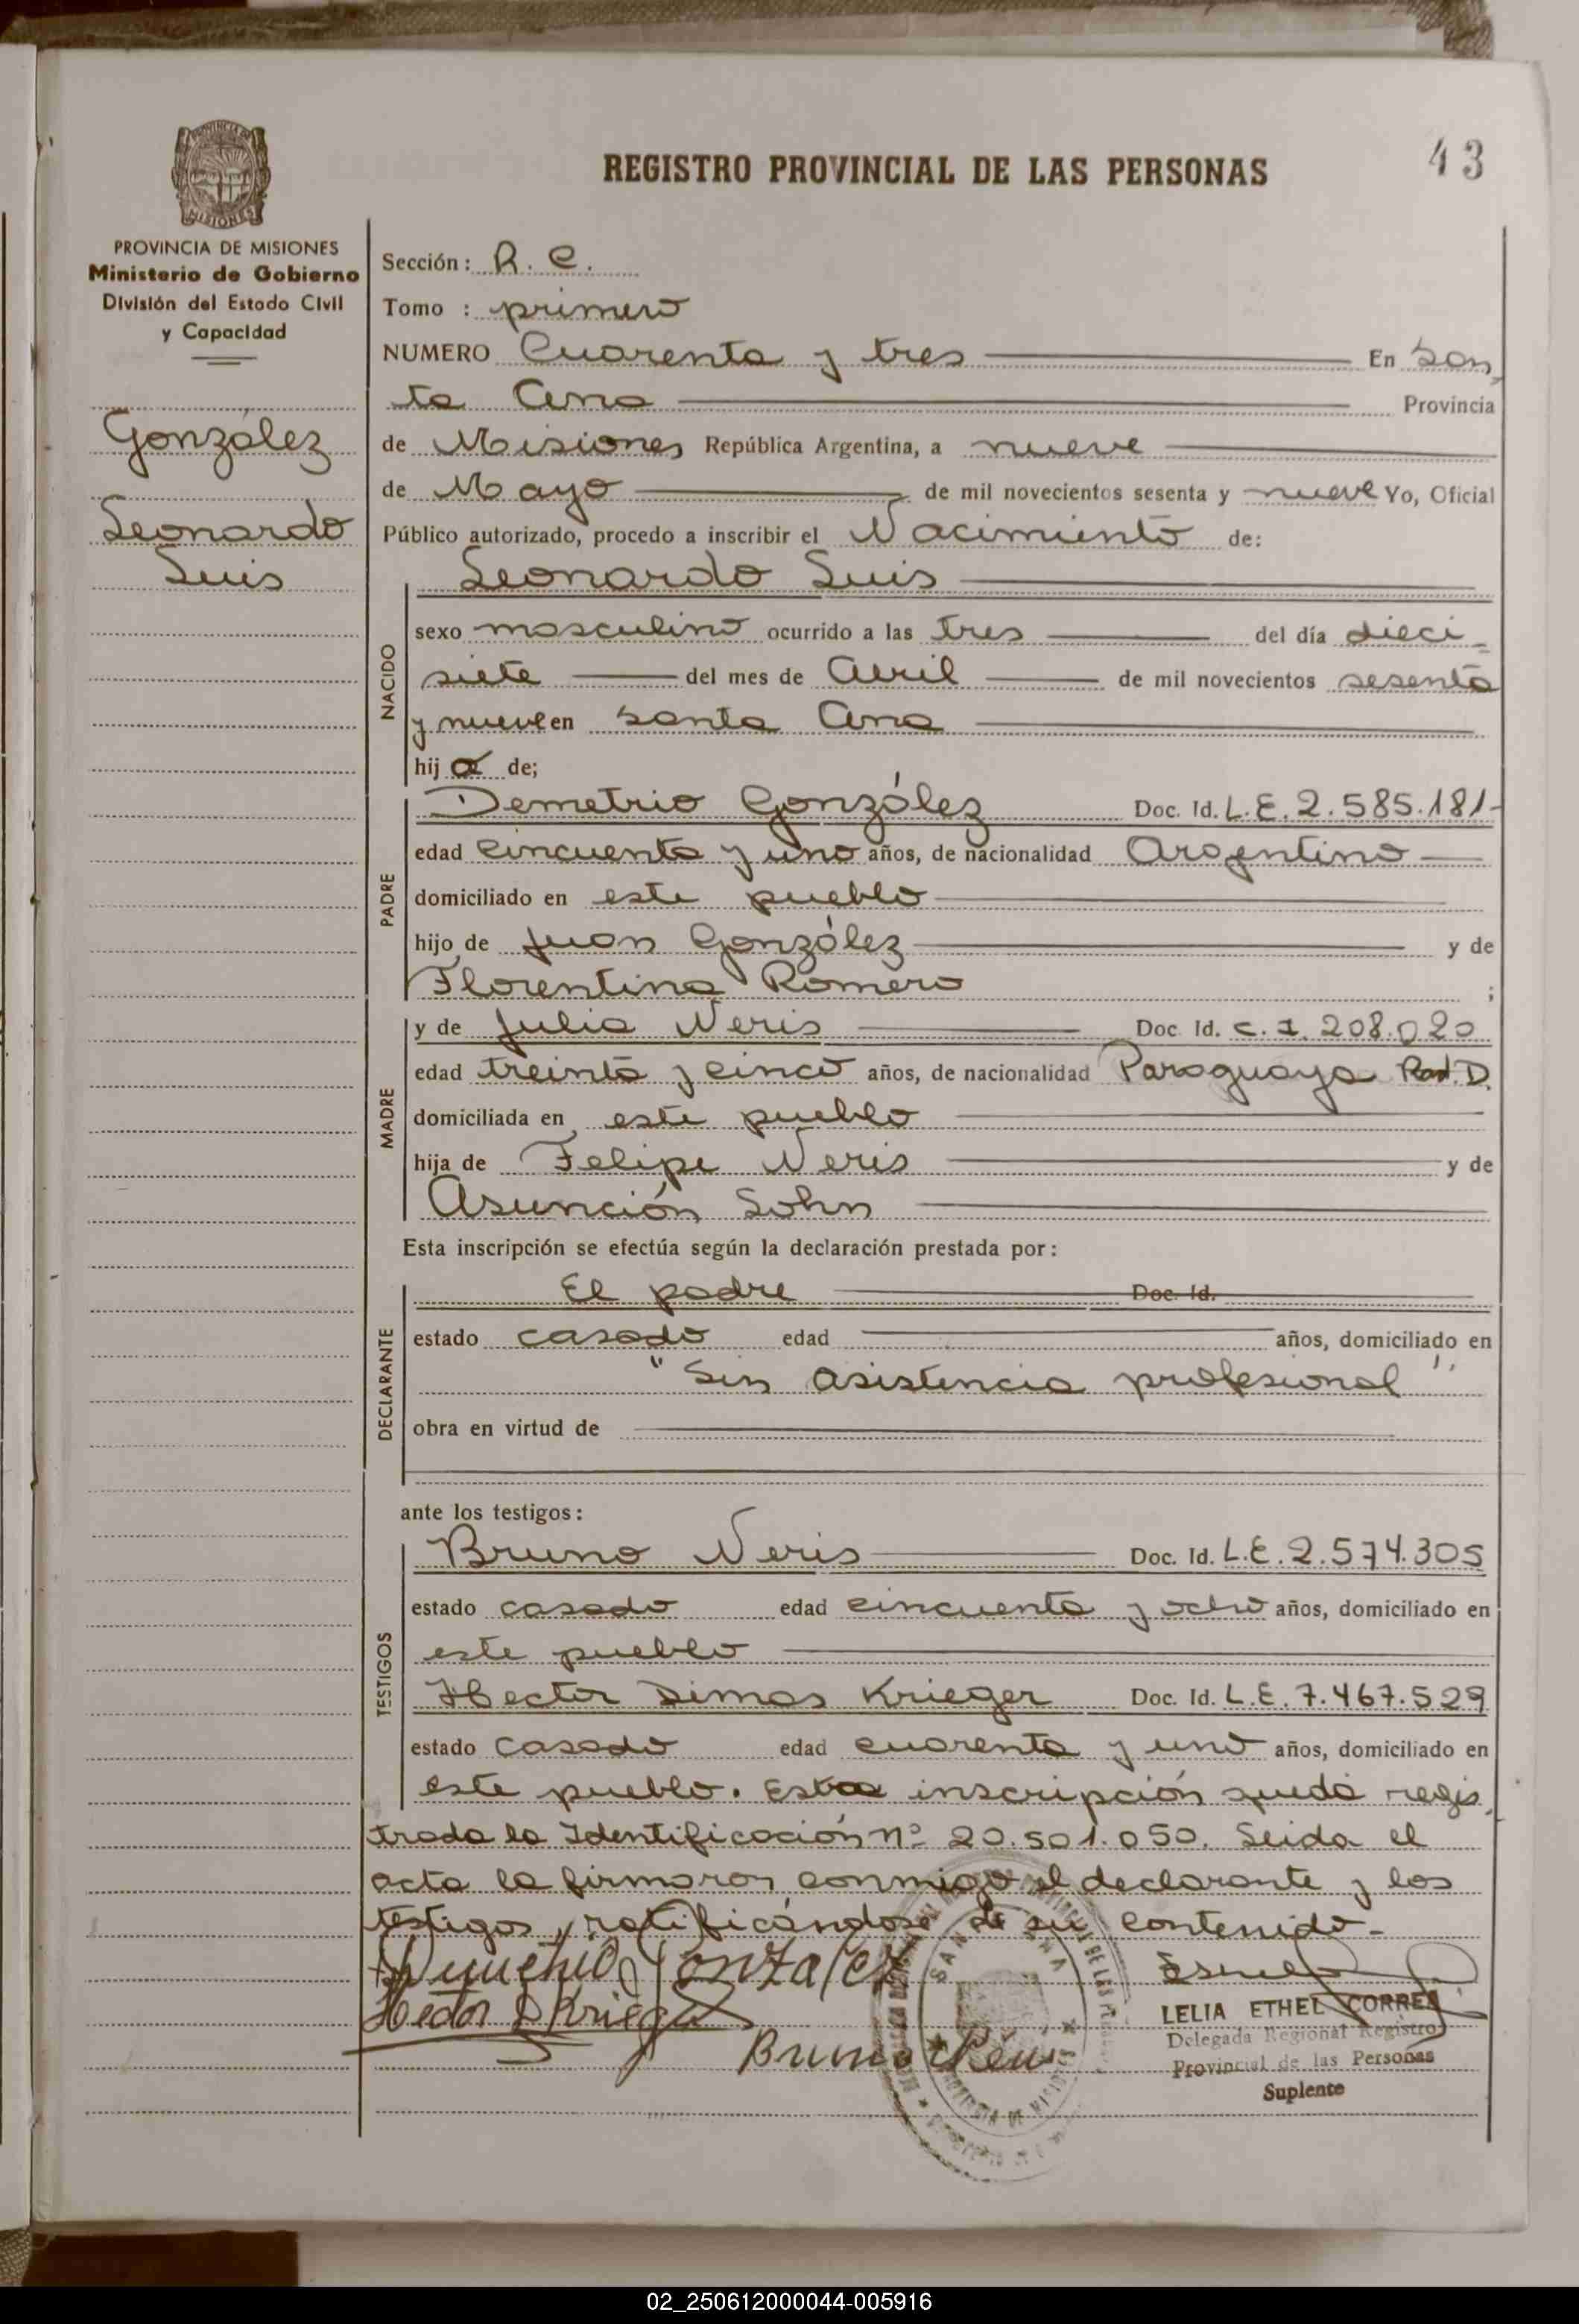 REGISTRO PROVINCIAL DE LAS PERSONAS
43
PROVINCIA DE
MISIONES
PROVINCIA DE MISIONES
Ministerio de Gobierno
División del Estado Civil
y Capacidad
González
Leonardo
Luis
Sección: R. C.
Tomo : primero
NUMERO Cuarenta y tres En San
ta Ana Provincia
de Misiones República Argentina, a nueve
de Mayo de mil novecientos sesenta y nueve Yo, Oficial
Público autorizado, procedo a inscribir el Nacimiento de:
NACIDO
Leonardo Luis
sexo masculino ocurrido a las tres del día dieci-
siete del mes de Abril de mil novecientos sesenta
y nueve en Santa Ana
hijo de;
PADRE
Demetrio González Doc. Id. L.E. 2.585.181-
edad cincuenta y uno años, de nacionalidad Argentino
domiciliado en este pueblo
hijo de Juan González y de
Florentina Romero ;
MADRE
y de Julia Neris Doc. Id. C.I. 208.020
edad treinta y cinco años, de nacionalidad Paraguaya Rad. D.
domiciliada en este pueblo
hija de Felipe Neris y de
Asunción Sohn
Esta inscripción se efectúa según la declaración prestada por:
DECLARANTE
El padre Doc. Id.
estado casado edad años, domiciliado en
"Sin asistencia profesional"
obra en virtud de
ante los testigos:
TESTIGOS
Bruno Neris Doc. Id. L.E. 2.574.305
estado casado edad cincuenta y ocho años, domiciliado en
este pueblo
Hector Dimas Krieger Doc. Id. L.E. 7.467.529
estado casado edad cuarenta y uno años, domiciliado en
este pueblo. Esta inscripción queda regis
trada la Identificación nº 20.501.050. Leida el
acta la firmaron conmigo el declarante y los
testigos, ratificándose de su contenido-
Demetrio Gonzalez
Hector D Krieger
Bruno
SANTA ANA
LELIA ETHEL CORREA
Delegada Regional Registro
Provincial de las Personas
Suplente
02_250612000044-005916